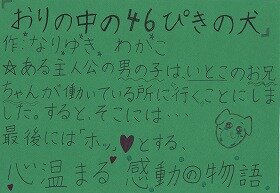 おりの中の46ぴきの犬
作:なりゆき わかこ
☆ある主人公の男の子は、いとこのお兄
ちゃんが働いている所に行くことにし
ました。すると、そこには・・・
最後には「ホッ」♥とする、
心温まる 感動の物語